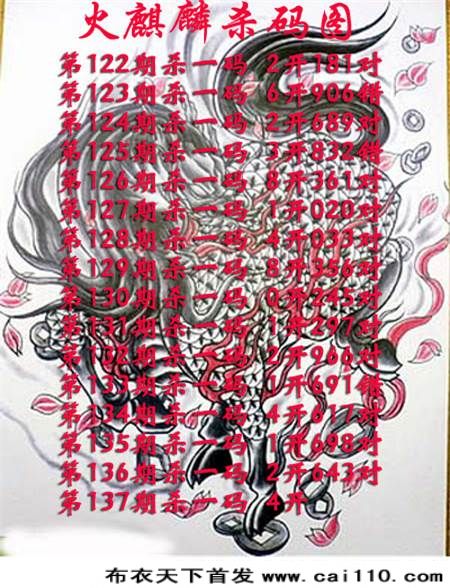 火麒麟杀码图
第122期杀一码 2开181对
第123期杀一码 6开906错
第124期杀一码 2开689对
第125期杀一码 3开832错
第126期杀一码 8开361对
第127期杀一码 1开020对
第128期杀一码 4开033对
第129期杀一码 8开356对
第130期杀一码 0开245对
第131期杀一码 1开297对
第132期杀一码 2开966对
第133期杀一码 1开691错
第134期杀一码 4开617对
第135期杀一码 1开698对
第136期杀一码 2开643对
第137期杀一码 4开
布衣天下首发 www.cai110.com